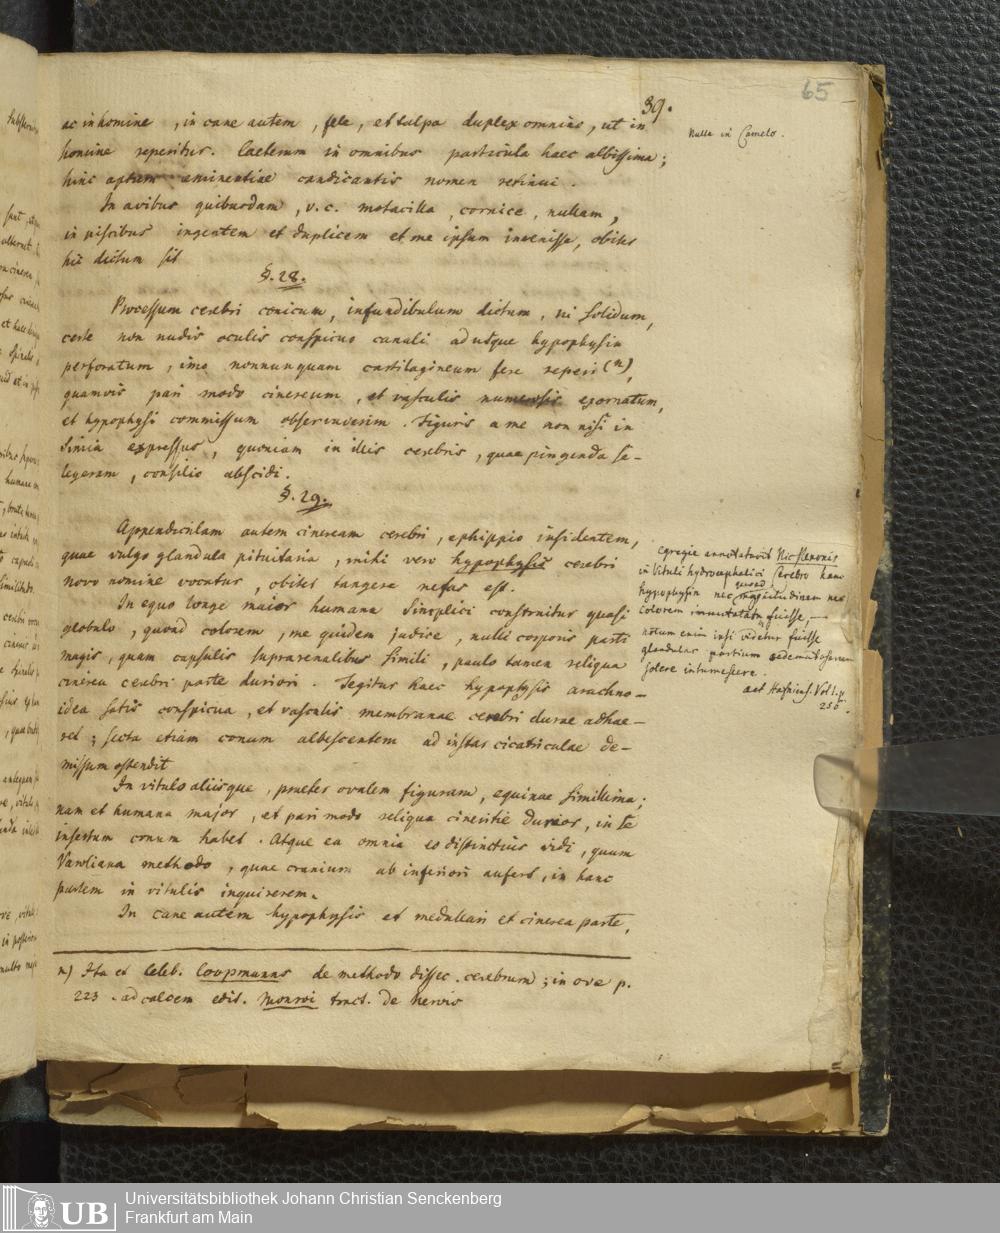 65
39.
ac in homine, in cane autem, fele, et talpa duplex omnino, ut in
homine reperitur. Caeterum in omnibus particula haec albissima;
hinc aptum eminentiae candicantis nomen retinui.
In avibus quibusdam, v.c. motacilla, cornice, nullam,
in piscibus ingentem et duplicem et me ipsum invenisse, obiter
hic dictum sit
§. 28.
Processum cerebri conicum, infundibulum dictum, ni solidum,
certe non nudis oculis conspicuo canali ad usque hypophysin
perforatum, imo nonnunquam cartilagineum fere reperi (n),
quamvis pari modo cinereum, et vasculis numerosis exornatum,
et hypophysi commissum observaverim. Figuris a me non nisi in
Simia expressus, quoniam in illis cerebris, quae pingenda se-
legeram, consilio abscidi.
§. 29.
Appendiculam autem cineream cerebri, ephippio insidentem,
quae vulgo glandula pituitaria, mihi vero hypophysis cerebri
novo nomine vocatur, obiter tangere nefas est.
In equo longe maior humana simplici construitur quasi
globulo, quoad colorem, me quidem judice, nulli corporis parti
magis, quam capsulis suprarenalibus simili, paulo tamen reliqua
cinerea cerebri parte duriori. Tegitur haec hypophysis arachno-
idea satis conspicua, et vasculis membranae cerebri durae adhae-
ret; secta etiam conum albescentem ad instar cicatriculae de-
missum ostendit
In vitulo aliisque, praeter ovalem figuram, equinae simillima;
nam et humana major, et pari modo reliqua cineritie durior, in se
insertum conum habet. Atque ea omnia eo distinctius vidi, quum
Varoliana methodo, quae cranium ab inferiori aufert, in hanc
partem in vitulis inquirerem.
In cane autem hypophysis et medullari et cinerea parte,
n) Ita et Celeb. Coopmanns de methodo dissec. cerebrum; in ove p.
223. ad calcem edit. Monroi tract. de nervis
Nulla in Camelo.
Egregie annotatur Nic Stenonis
in Vituli hydrocephalici Cerebro hanc
hypophysin nec quoad magnitudinem nec
colorem immutatam fuisse, —
notum enim ipsi videtur fuisse
glandulas partium
solere intumescere.
act Hafniens. Vol 1. p.
250.
Universitätsbibliothek Johann Christian Senckenberg
Frankfurt am Main
UB